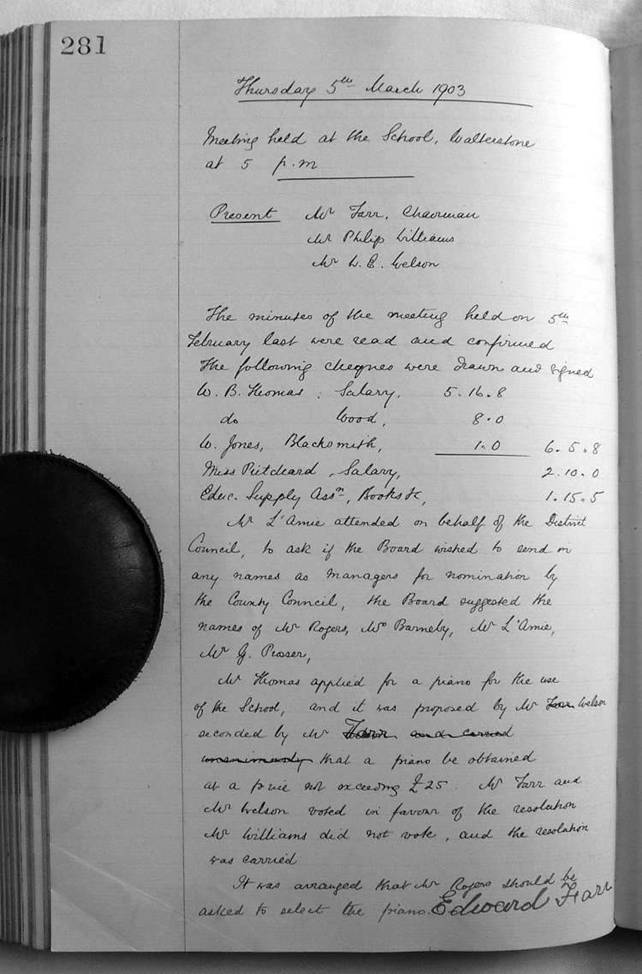 281
Thursday 5th March 1903
Meeting held at the School, Walterstone
at 5 p.m
Present Mr Farr, Chairman
Mr Philip Williams
Mr W. E. Welson
The minutes of the meeting held on 5th
February last were read and confirmed
The following cheques were drawn and signed
W. B. Thomas, Salary, 5.16.8
do Wood, 8.0
W. Jones, Blacksmith, 1.0 6.5.8
Miss Salary, 2.10.0
Educ. Supply Assn, Books &c, 1.15.5
Mr L'Amie attended on behalf of the District
Council, to ask if the Board wished to send on
any names as Managers for nomination by
the County Council, the Board suggested the
names of Mr Rogers, Barneby, Mr L'Amie,
Mr G. Prosser,
Mr Thomas applied for a piano for the use
of the School, and it was proposed by Mr Farr Welson
seconded by Mr Farr and carried
unanimously that a piano be obtained
at a price not exceeding £25. Mr Farr and
Mr Welson voted in favour of the resolution
Mr Williams did not vote, and the resolution
was carried
It was arranged that Mr Rogers should be
asked to select the piano. Edward Farr